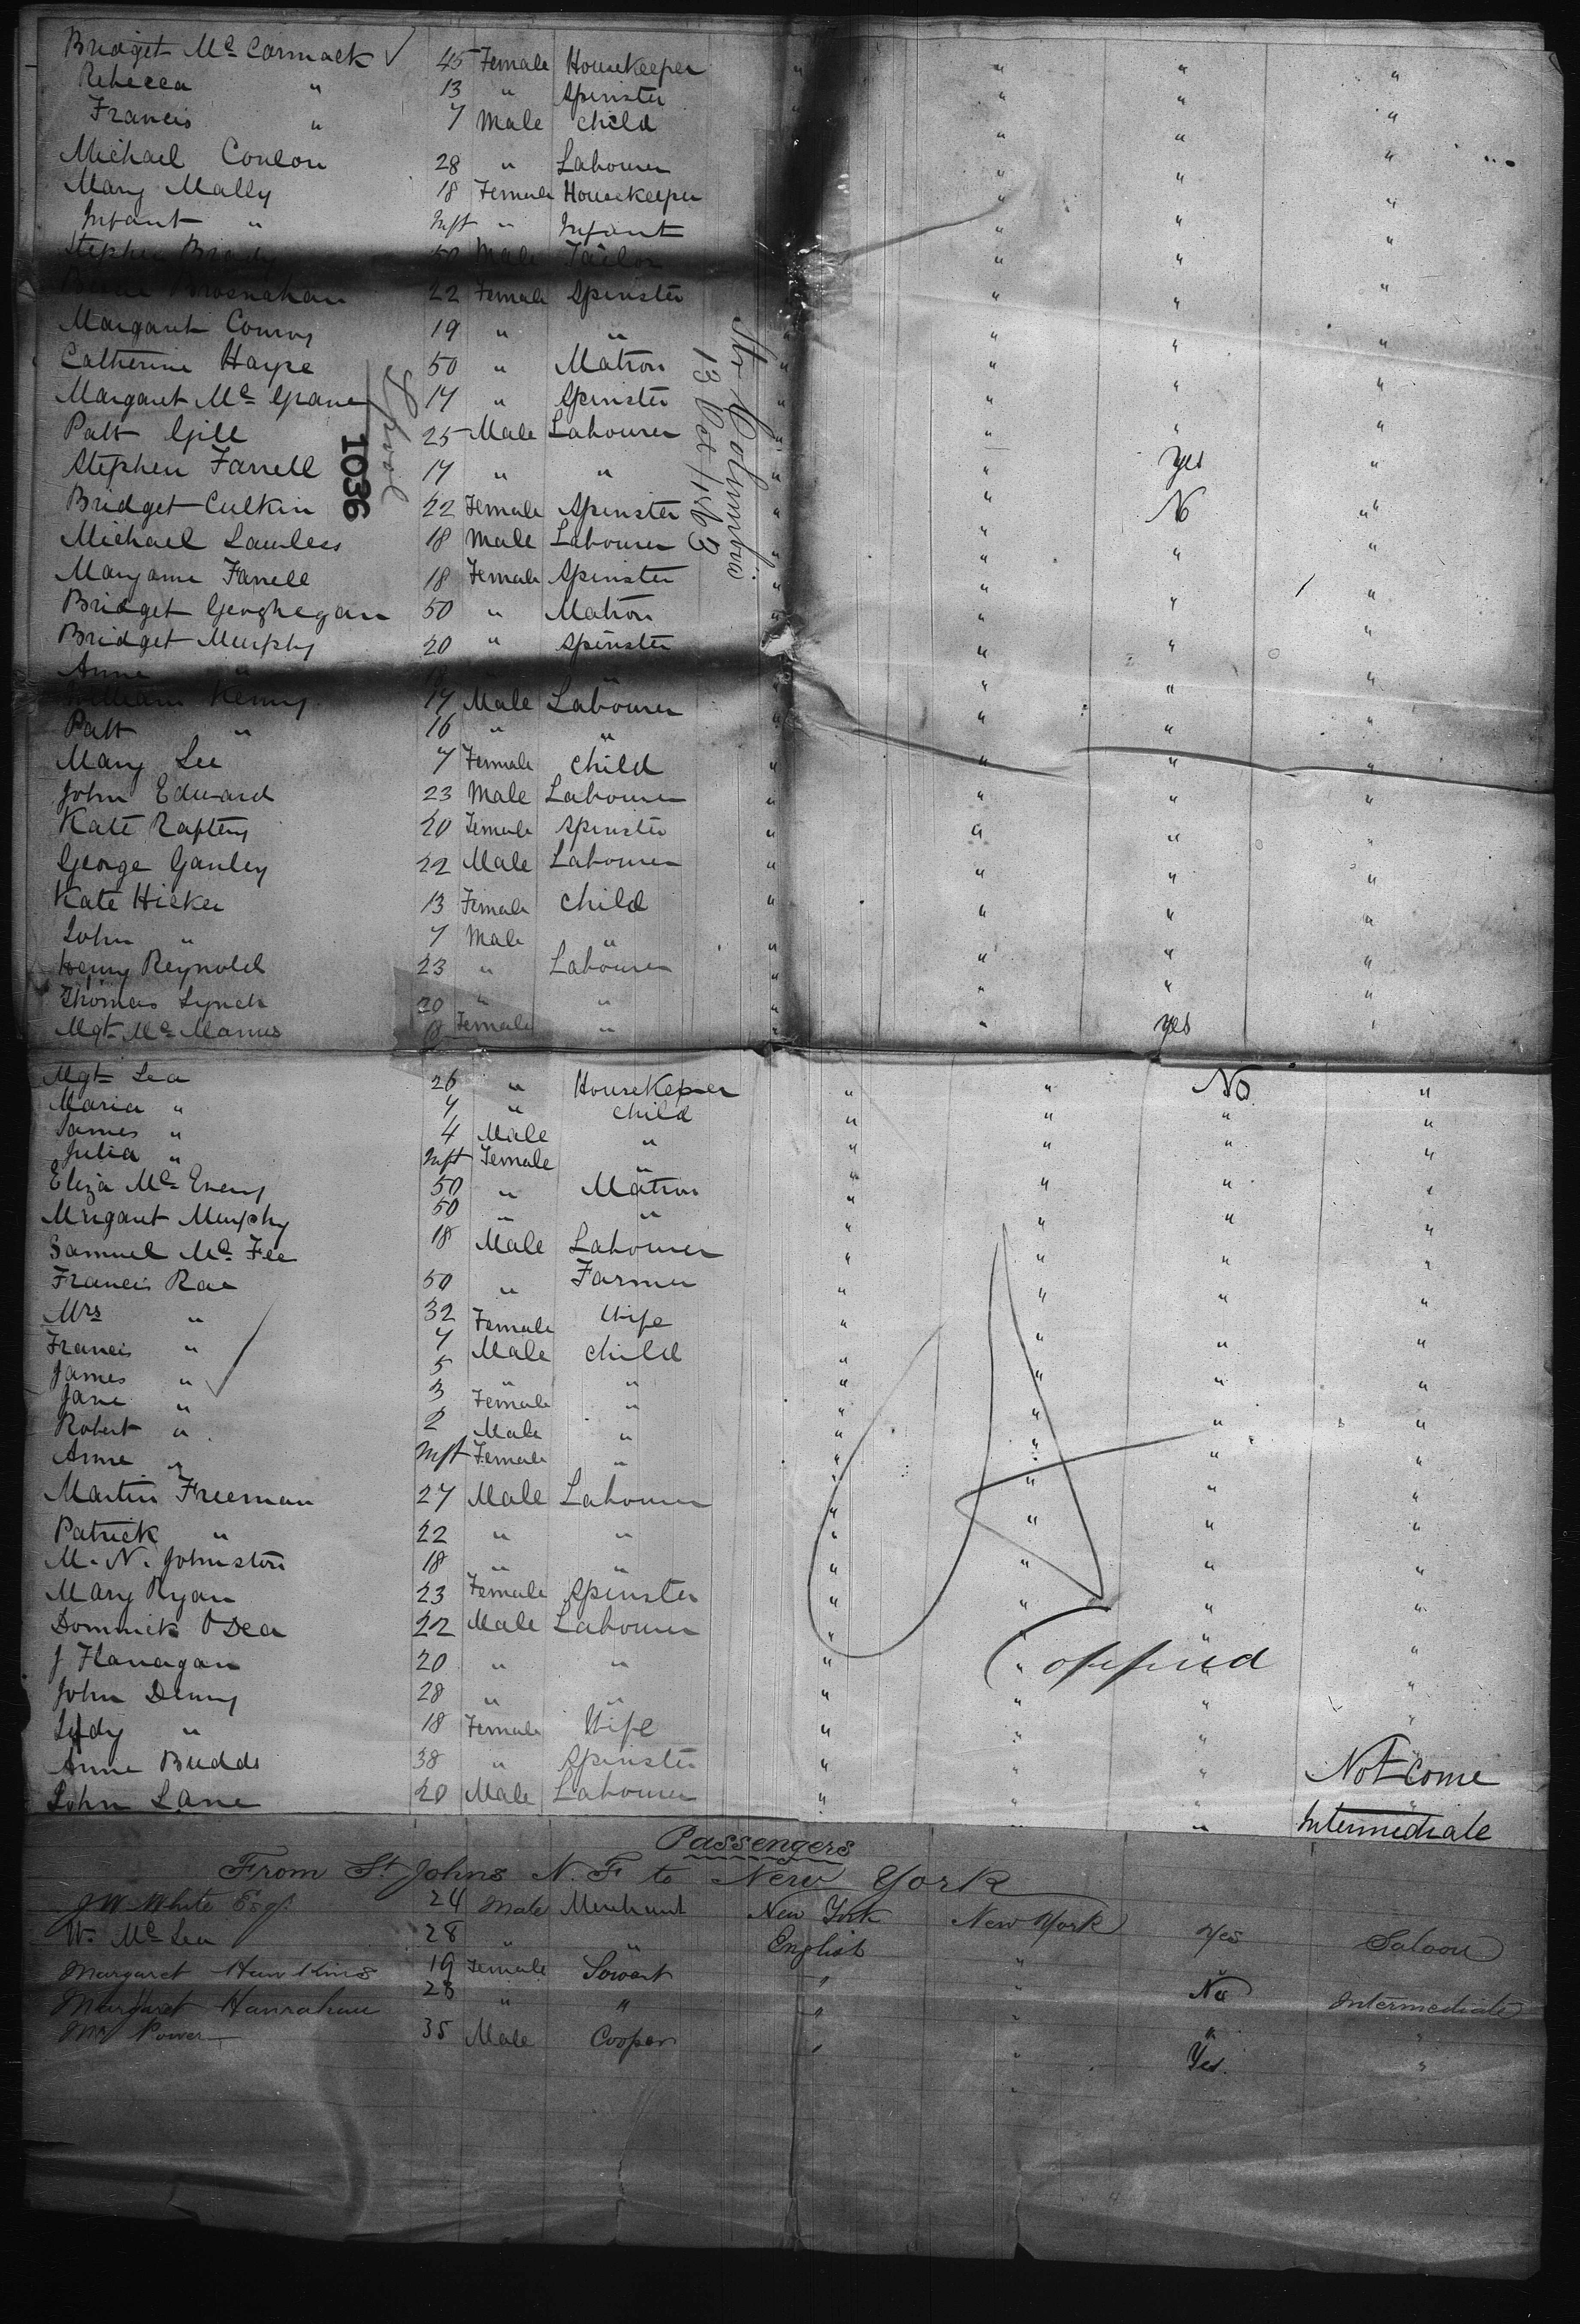 Bridget Mc Cormack ✓ 45 Female Housekeeper " " " "
Rebecca " 13 " Spinster " " "
Francis " 7 Male Child " " "
Michael Conlon 28 " Labourer " " "
Mary Mally 18 Female Housekeeper " " "
Infant " Inft " Infant " " "
Stephen Brady 50 Male Tailor " " "
Brosnahan 22 Female Spinster " " "
Margaret Conroy 19 " " " " " "
Catherine Harpe 50 " Matron " " " "
Margaret Mc Grane 17 " Spinster " " " "
Patt Gill 25 Male Labourer " " " "
Stephen Farrell 17 " " " " yes "
Bridget Culkin 22 Female Spinster " " No "
Michael Lawless 18 Male Labourer " " " "
Maryanne Farrell 18 Female Spinster " " " "
Bridget Geoghegan 50 " Matron " " " "
Bridget Murphy 20 " Spinster " " "
Anne " 18 " " " "
William Kenny 17 Male Labourer " " " "
Patt " 16 " " " " " "
Mary Lee 7 Female Child " " " "
John Edward 23 Male Labourer " " " "
Kate Raftery 20 Female Spinster " " " "
George Ganley 22 Male Labourer " " " "
Kate Hickey 13 Female Child " " " "
John " 7 Male " " " " "
Henry Reynold 23 " Labourer " " " "
Thomas Lynch 20 " " " " " "
Mgt Mc Manus 18 Female " " " yes "
Str Columbia
13 Oct 1863
1036
Mgt Lea 26 " Housekeper " " No "
Maria " 7 " Child " " " "
James " 4 Male " " " " "
Julia " Inft Female " " " " "
Eliza Mc Eneny 50 " Matron " " " "
Margaret Murphy 50 " " " " " "
Samuel Mc Fee 18 Male Labourer " " " "
Francis Rae 50 " Farmer " " " "
Mrs " 32 Female Wife " " " "
Francis " 7 Male Child " " " "
James " ✓ 5 " " " " " "
Jane " 3 Female " " " " "
Robert " 2 Male " " " " "
Anne " Inft Female " " " " "
Martin Freeman 27 Male Labourer " " " "
Patrick " 22 " " " " " "
M. N. Johnston 18 " " " " " "
Mary Ryan 23 Female Spinster " " " "
Dominick O Dea 22 Male Labourer " " " "
J Flanagan 20 " " " " " "
Copied
John Denny 28 " " " " " "
" 18 Female Wife " " " "
Anne Budds 38 " Spinster " " " Not Come
John Lane 20 Male Labourer " " " Intermediate
Passengers
From St Johns N. F to New York
J W White Esqr 24 Male Merchant New York New York Yes Saloon
Wm Mc Lea 28 " " English " " "
Margaret Hawkins 19 Female Servant " " No Intermediate
Margaret Hanrahan 28 " " " " " "
Mr Power 35 Male Cooper " " Yes "